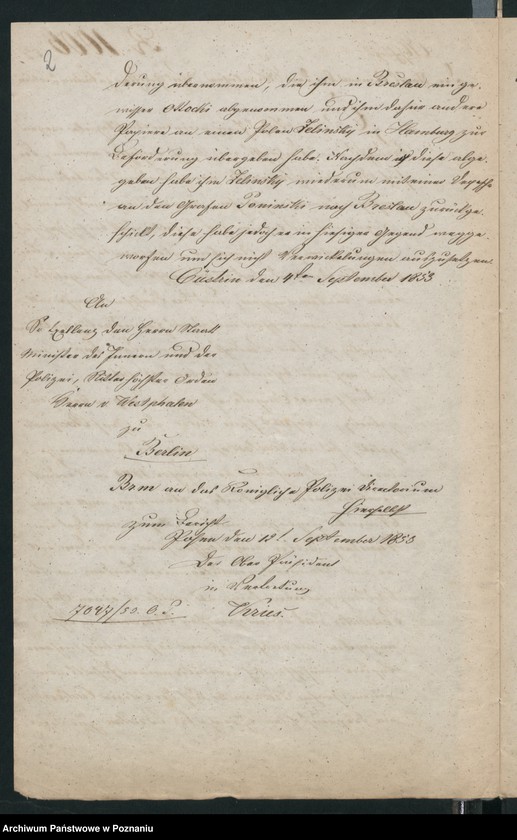 2
derung übernommen, die ihm in Breslau ein ge-
wisser Ottocki abgenommen und ihm dafür andere
Papiere an einen Polen Jelinsky in Hamburg zur
Beförderung übergeben habe. Nachdem er diese abge-
geben habe ihn Jelinsky wiederum mit einer Depesche
an den Grafen Poninski nach Breslau zurückge-
schickt, diese habe jedoch er in hiesiger Gegend wegge-
worfen um sich nicht Verwickelungen auszusetzen.
Cüstrin den 4ten September 1853
An
Se Exellenz den Herrn Staats
Minister des Innern und der
Polizei, Ritter höchster Orden
Herrn v. Westphalen
zu
Berlin
Brm an das Königliche Polizei Directorium
hieselbst
zum Bericht
Posen den 12t September 1853
Der Ober Präsident
in Vertretung
Kries.
7097/53. O. P.
Archiwum Państwowe w Poznaniu